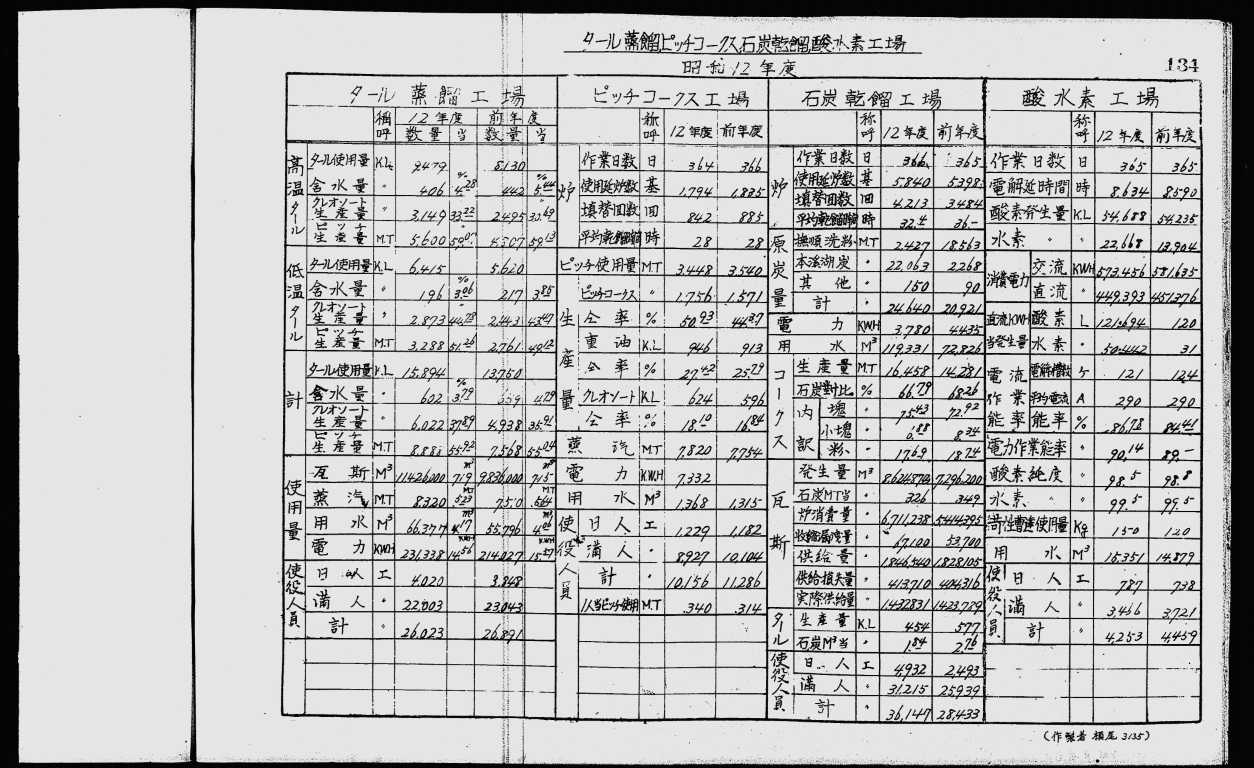 タール蒸餾,ピッチコークス,石炭乾餾,酸水素工場
昭和12年度
134
タール蒸餾工場
称呼 12年度 前年度
数量 当 数量 当
高温タール
タール使用量 KL 9,479 8,130
含水量 〃 406 4.28% 442 5.44%
クレオソート生産量 〃 3,149 33.22 2,495 30.69
ピッチ生産量 M.T 5,600 59.07 4,807 59.13
低温タール
タール使用量 K.L 6,415 5,620
含水量 〃 196 3.06% 217 3.85
クレオソート生産量 〃 2,873 44.78 2,443 43.47
ピッチ生産量 M.T 3,288 51.26 2,761 49.12
計
タール使用量 K.L 15,894 13,750
含水量 〃 602 3.79% 659 4.79
クレオソート生産量 〃 6,022 37.89 4,938 35.91
ピッチ生産量 M.T 8,888 55.92 7,568 55.04
使用量
瓦斯 M³ 11,426,000 719 M³ 9,836,000 715 M³
蒸汽 M.T 8,320 MT 7,510 MT
用水 M³ 66,377 4.17 M³ 55,796 4.06 M³
電力 KWH 231,338 14.56 KWH 214,027 15.57 KWH
使役人員
日人 工 4,020 3,848
満人 〃 22,003 23,043
計 〃 26,023 26,891
ピッチコークス工場
称呼 12年度 前年度
炉
作業日数 日 364 366
使用延炉数 基 1,794 1,835
填替回数 回 842 885
平均乾餾時間 時 28 28
ピッチ使用量 MT 3,448 3,540
生産量
ピッチコークス 〃 1,756 1,571
仝率 % 50.93 44.37
重油 K.L 946 913
仝率 % 27.42 25.79
クレオソート KL 624 596
仝率 % 18.10 16.84
蒸汽 MT 7,820 7,754
電力 KWH 7,332
用水 M³ 1,368 1,315
使役人員
日人 工 1,229 1,182
満人 〃 8,927 10,104
計 〃 10,156 11,286
1人当ピッチ使用 M.T 340 .314
石炭乾餾工場
称呼 12年度 前年度
炉
作業日数 日 366 365
使用延炉数 基 5,840 5,398
填替回数 回 4,213 3,484
平均乾餾時間 時 32.4 36.-
原炭量
撫順洗粉 M.T 2,427 18,563
本渓湖炭 〃 22,063 2,268
其他 〃 150 90
計 〃 24,640 20,921
電力 KWH 3,780 4,435
用水 M³ 119,331 72,826
コークス
生産量 MT 16,458 14,281
石炭対比 % 66.79 68.26
内訳
塊 〃 75.43 72.92
小塊 〃 6.88 8.34
粉 〃 17.69 18.74
瓦斯
発生量 M³ 7,296,200
石炭MT当 〃 326 349
炉消費量 〃 6,711,238 5,414,395
〃 67,100 53,700
供給量 〃 1,846,540 1,828,105
供給損失量 〃 413,710 404,316
実際供給量 〃 1,432,831 1,423,789
タール
生産量 K.L 454 577
石炭M³当 〃 1.84 2.76
使役人員
日人 工 4,932 2,493
満人 〃 31,215 25,939
計 〃 36,147 28,433
酸水素工場
称呼 12年度 前年度
作業日数 日 365 365
電解延時間 時 8,634 8,590
酸素発生量 K.L 54,688 54,235
水素〃 〃 22,668 13,904
消費電力
交流 KWH 573,456 581,635
直流 〃 449,393 451,376
直流KWH当発生量
酸素 L 121.694 120
水素 〃 50.442 31
電流作業能率
電解槽数 ヶ 121 124
平均電流 A 290 290
能率 % 86.78 84.41
電力作業能率 〃 90.14 89.-
酸素純度 〃 98.5 98.8
水素〃 〃 99.5 99.5
苛性曹達使用量 Kg 150 120
用水 M³ 15,351 14,879
使役人員
日人 工 787 738
満人 〃 3,466 3,721
計 〃 4,253 4,459